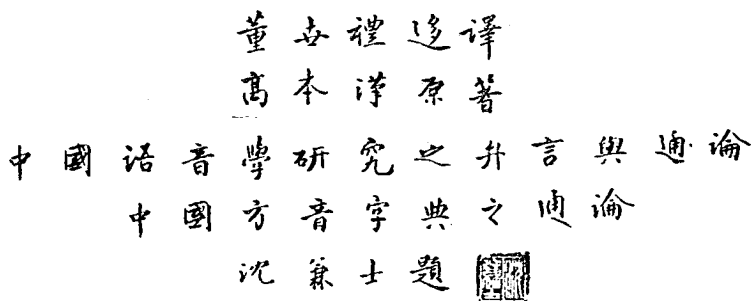 董世禮迻譯
高本漢原著
中國語音學研究之弁言與通論
中國方音字典之通論
沈兼士題